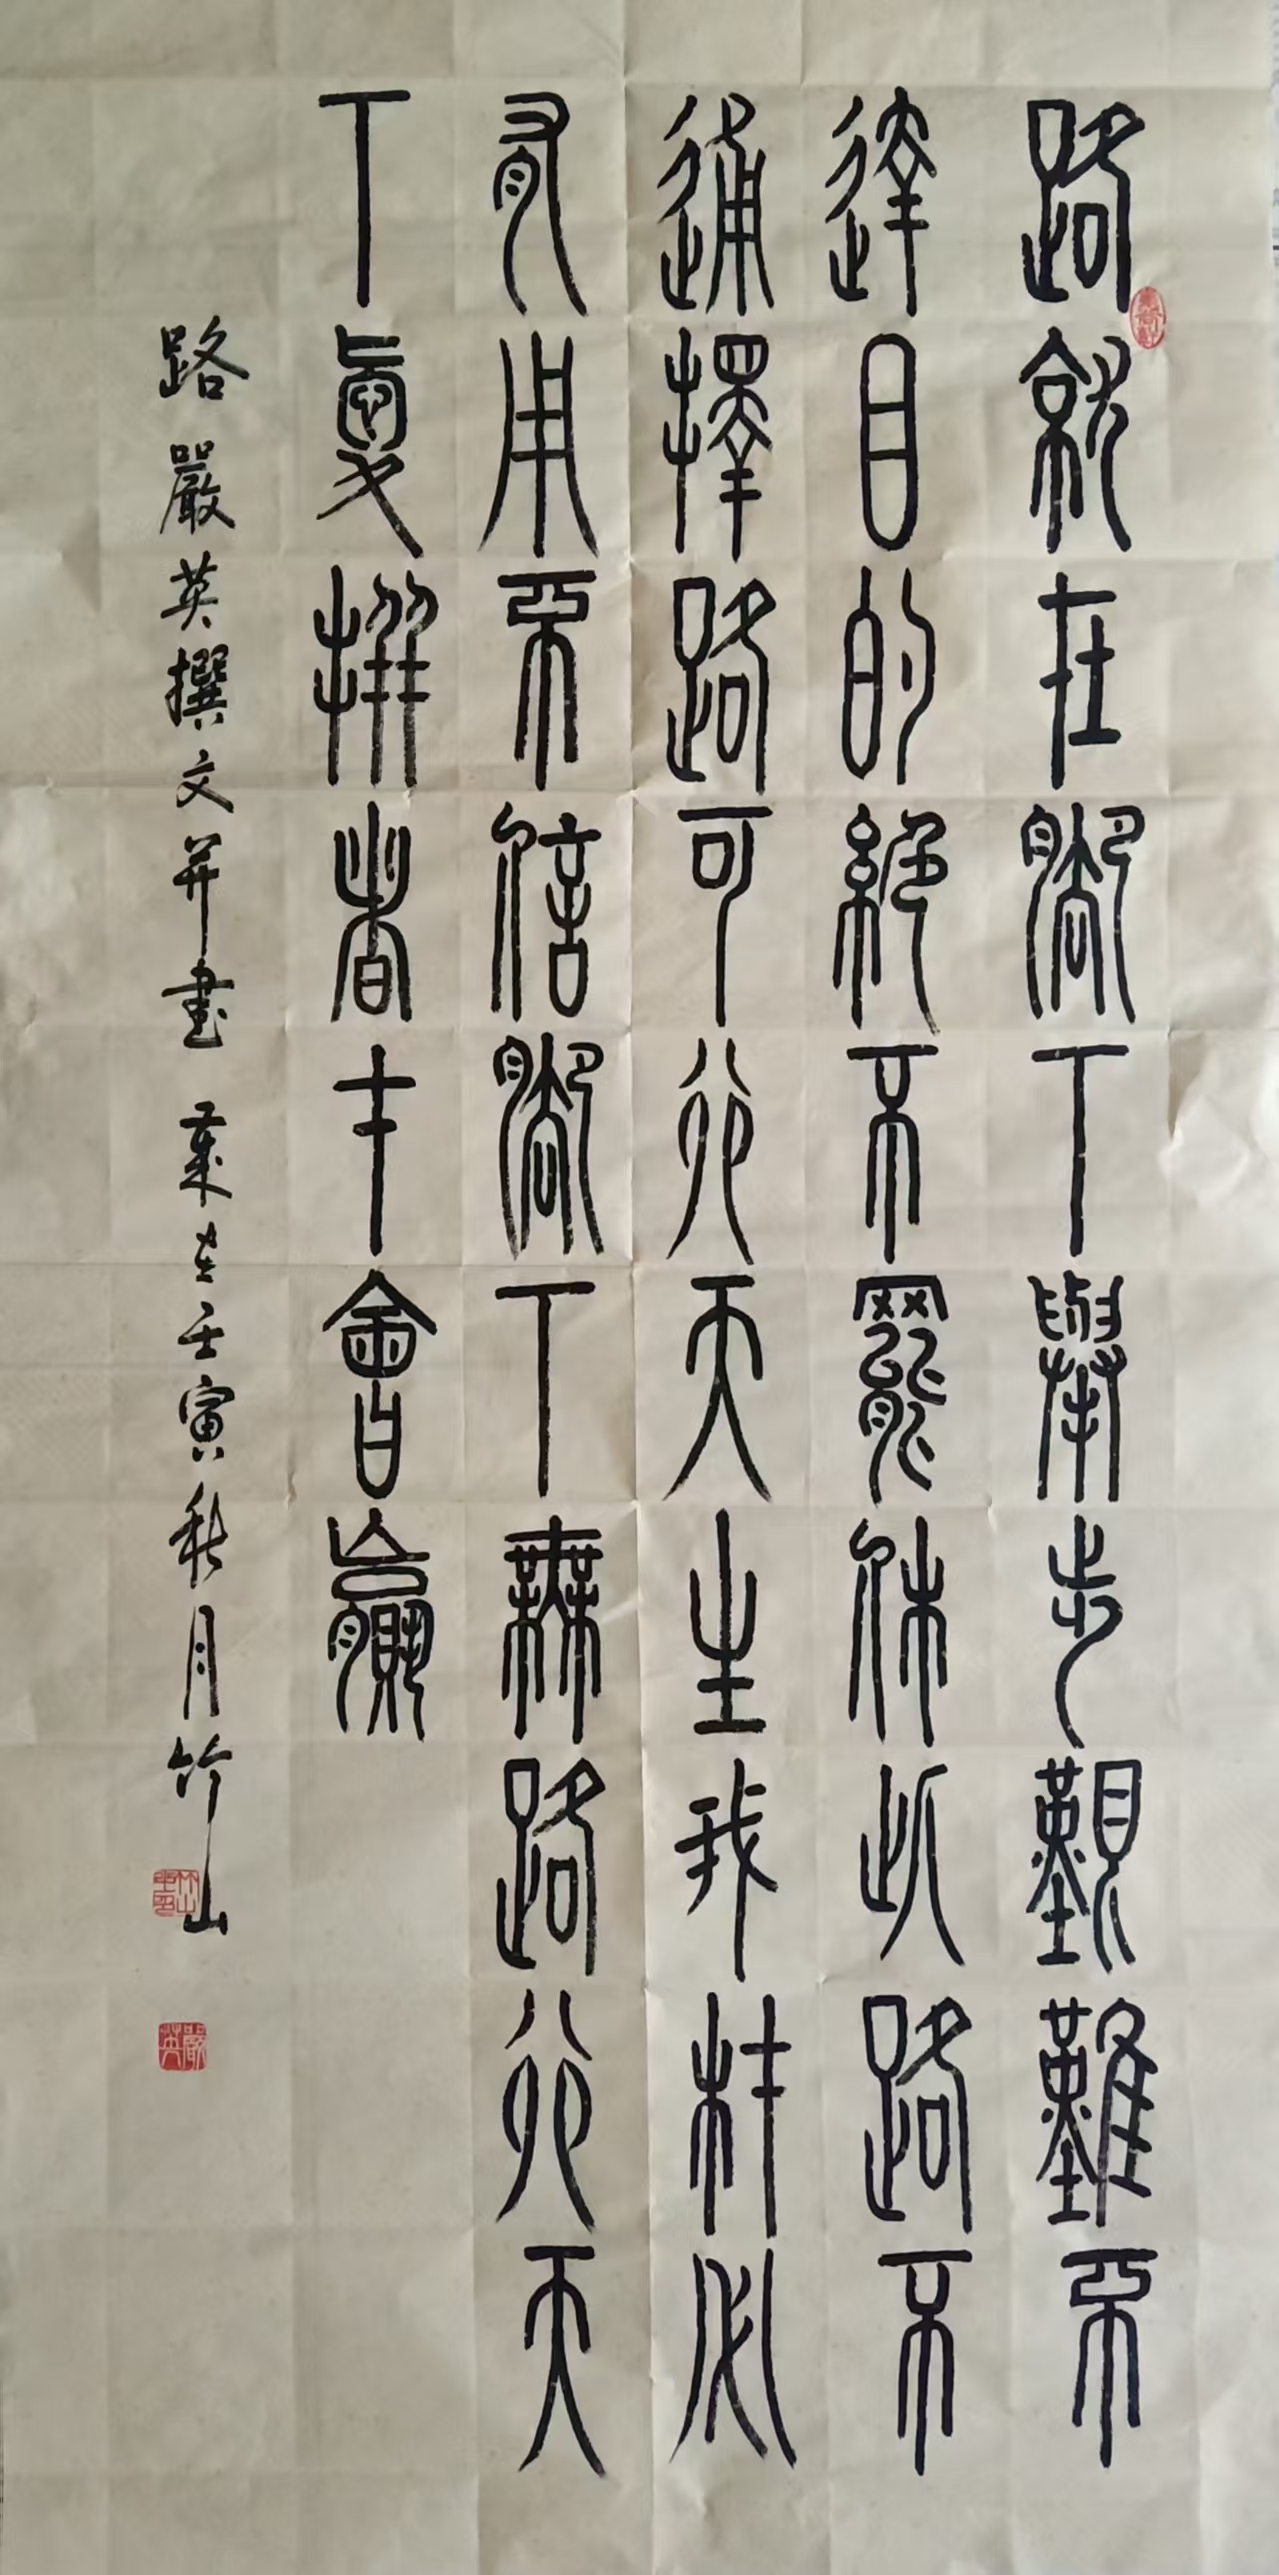 路就在腳下舉步艱難不
達目的絕不罷休此路不
通擇路可行天生我材必
有用不信腳下無路行天
下愛拼者才會贏
路 嚴英撰文并書 葉生壬寅秋月竹山
嚴英